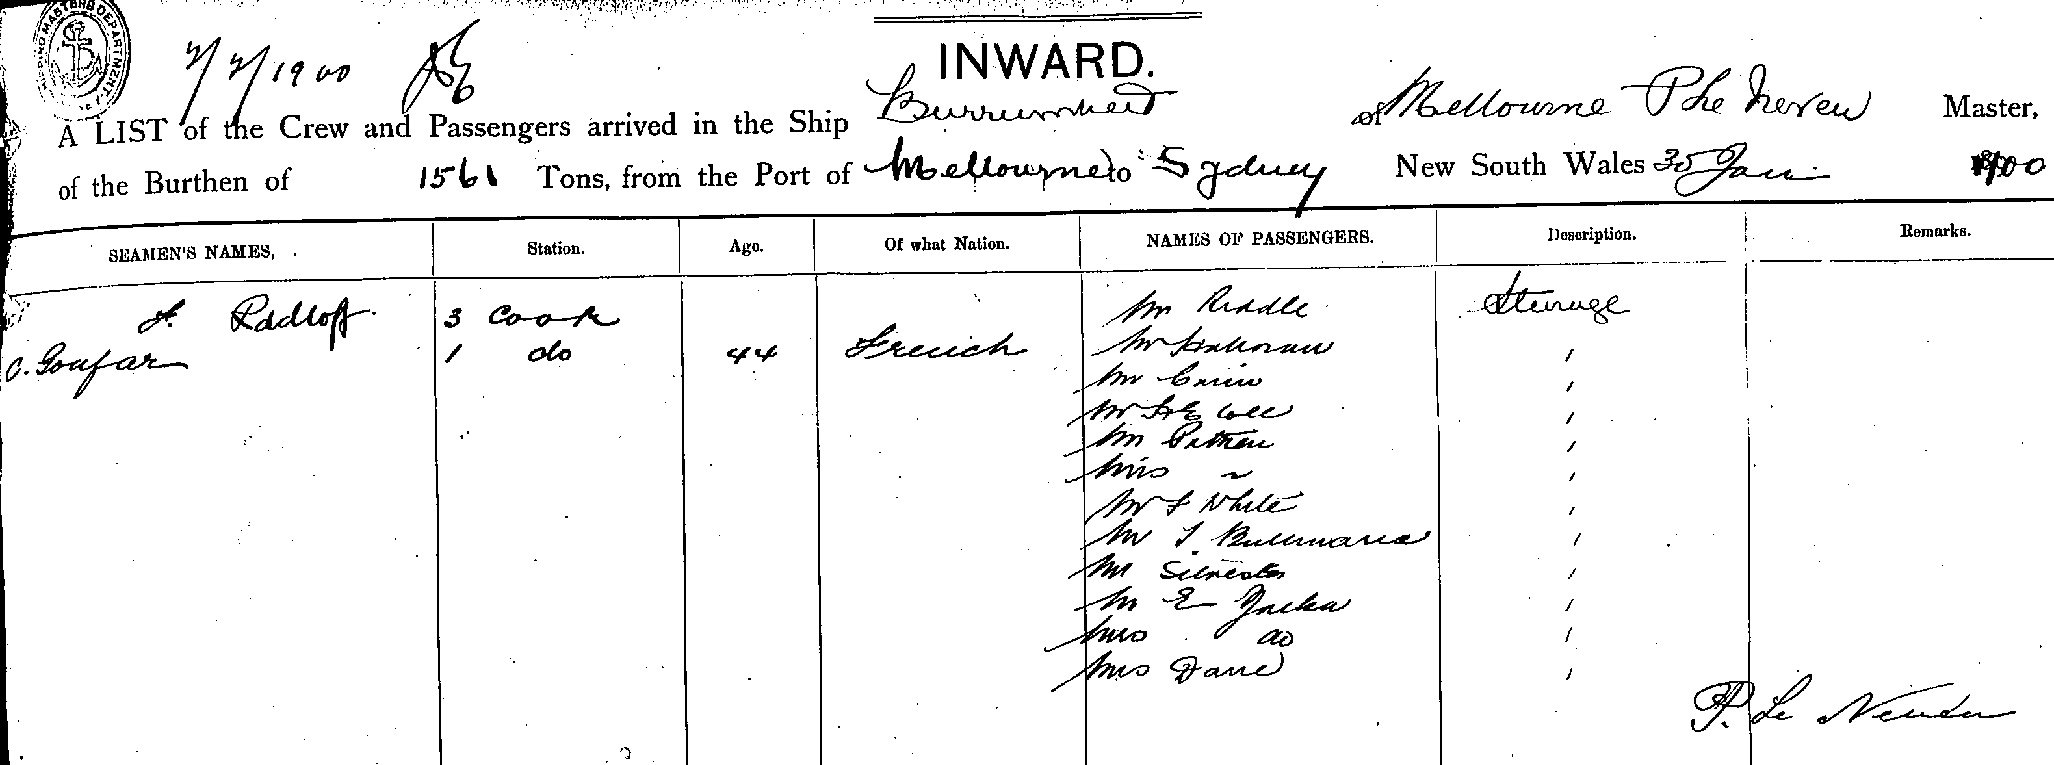 INWARD.
2/2/1900
A LIST of the Crew and Passengers arrived in the Ship Burrumbeet of Melbourne P Le Neveu Master,
of the Burthen of 1561 Tons, from the Port of Melbourne to Sydney New South Wales 30 Jan 1900
SEAMEN'S NAMES, Station. Age. Of what Nation. NAMES OF PASSENGERS. Description. Remarks.
F. Radloff 3 Cook Mr Riddle Steerage
C. Goufar 1 do 44 French Mr "
Mr "
Mr "
Mr "
Mrs ~ "
Mr F White "
Mr "
Mr Silvester "
Mr E Jacka "
Mrs do "
Mrs Dane "
P. Le Neveu